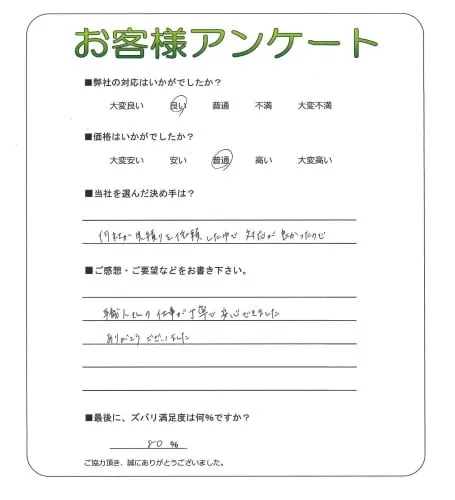 お客様アンケート
■弊社の対応はいかがでしたか?
大変良い 良い 普通 不満 大変不満
■価格はいかがでしたか?
大変安い 安い 普通 高い 大変高い
■当社を選んだ決め手は?
何社か見積りを依頼した中で 対応が良かったので
■ご感想・ご要望などをお書き下さい。
職人さんの仕事が丁寧で安心できました
ありがとうございました
■最後に、ズバリ満足度は何%ですか?
80 %
ご協力頂き、誠にありがとうございました。